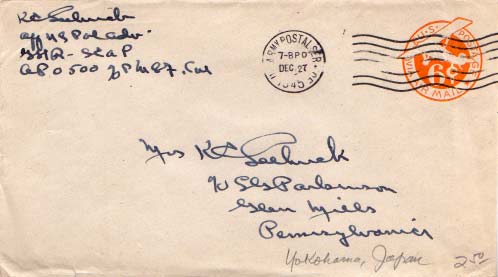 KC Sealnick
Off US Pol Adv.
GHQ - SCAP
APO 500 % PM SF, Cal
ARMY POSTAL SER.
7-8PD
DEC 27
1945
U.S. POSTAGE
6¢
VIA AIR MAIL
Mrs KC
% Parkinson
Glen Mills
Pennsylvania
Yokohama, Japan
2.50